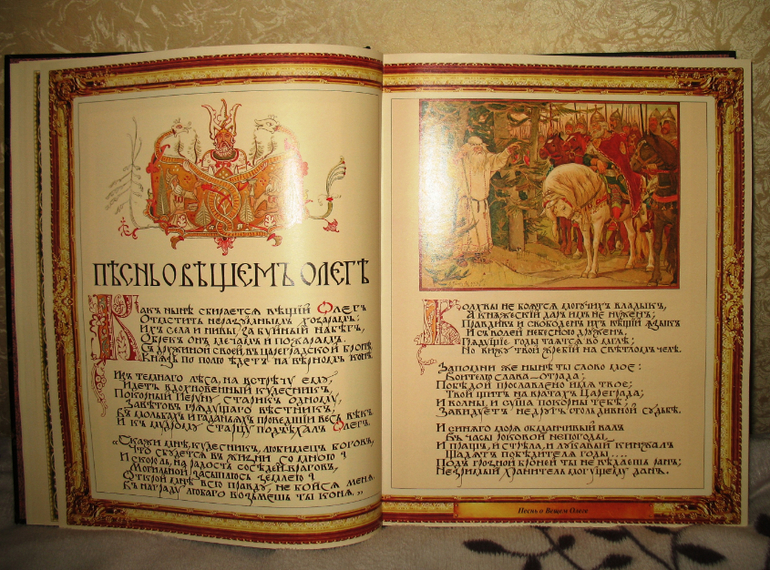 ПѢСНЬ О ВѢЩЕМЪ ОЛЕГѢ
Какъ нынѣ сбирается вѣщій Олегъ
Отмстить неразумнымъ хозарамъ;
Ихъ села и нивы, за буйный набѣгъ,
Обрекъ онъ мечамъ и пожарамъ.
Съ дружиной своей, въ цареградской бронѣ,
Князь по полю ѣдетъ на вѣрномъ конѣ.
Изъ темнаго лѣса, на встрѣчу ему,
Идетъ вдохновенный кудесникъ,
Покорный Перуну старикъ одному,
Завѣтовъ грядущаго вѣстникъ,
Въ мольбахъ и гаданьяхъ проведшій весь вѣкъ
И къ мудрому старцу подъѣхалъ Олегъ.
„Скажи мнѣ, кудесникъ, любимецъ боговъ,
Что сбудется въ жизни со мною?
И скоро ль, на радость сосѣдей-враговъ,
Могильной засыплюсь землею?
Открой мнѣ всю правду, не бойся меня
Въ награду любаго возьмешь ты коня.„
Волхвы не боятся могучихъ владыкъ,
А княжескій даръ имъ не нуженъ;
Правдивъ и свободенъ ихъ вѣщій языкъ
И съ волей небесною друженъ.
Грядущіе годы таятся во мглѣ;
Но вижу твой жребій на свѣтломъ челѣ.
Запомни же нынѣ ты слово мое:
Воителю слава — отрада;
Побѣдой прославлено имя твое;
Твой щитъ на вратахъ Цареграда;
И волны, и суша покорны тебѣ;
Завидуетъ недругъ столь дивной судьбѣ.
И синяго моря обманчивый валъ
Въ часы роковой непогоды,
И пращъ, и стрѣла, и лукавый кинжалъ
Щадятъ побѣдителя годы...
Подъ грозной броней ты не вѣдаешь ранъ;
Незримый хранитель могущему данъ.
Песнь о Вещем Олеге